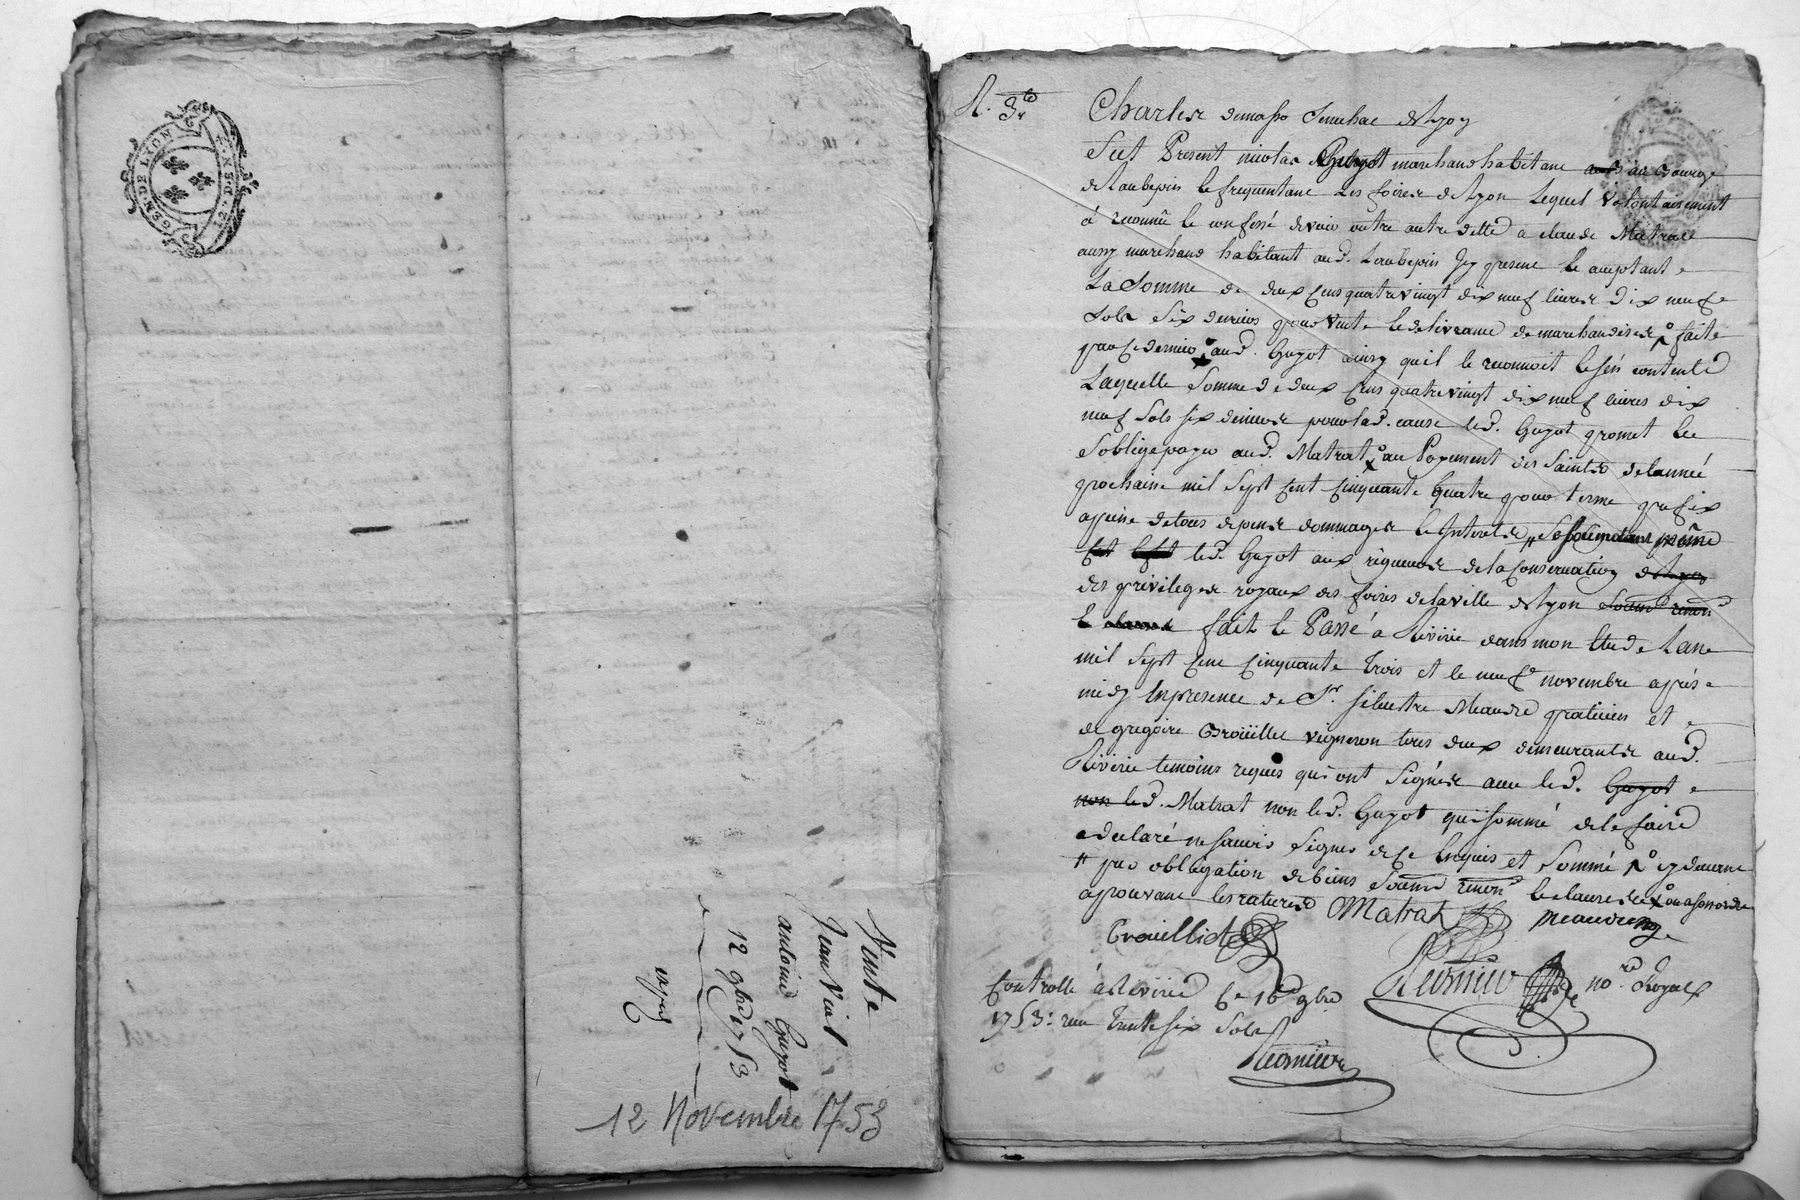 GEN. DE LYON
Vente
Jean Vial
antoine Guyot
12 9bre 1753
expéd
12 Novembre 1753
Charles demasso senechac de Lyon
Fut Present nicolas Guyot marchand habitant au Bourg
de Laubepin le frequentant Les foires de Lyon Lequel volontairement
à reconnu le confessé devoir outre autre dette a claude Matrat
aussy marchand habitant aud. Laubepin Icy present le aceptant
La Somme de deux Cens quatre vingt dix neuf livres dix neuf
sols six deniers pour vente le delivrance de marchandises faite
par Ce dernier aud. Guyot ainsy quil le reconnoit le sen contente
Laquelle Somme de deux Cens quatre vingt dix neuf livres dix
neuf sols six deniers pour lad. cause led. Guyot promet le
soblige payer aud. Matrat au Payement des Saints de lannée
prochaine mil Sept Cent Cinquante Quatre pour terme prefix
apeine de tous depens dommages le Interets
led. Guyot aux rigueurs de la Conservation
des privileges royaux des foires de la ville de Lyon
fait le Passé a Riverie dans mon Etude Lan
mil Sept Cent Cinquante Trois et le neuf novembre après
midy En presence de Sr. silvestre Meaudre praticien et
de gregoire Brouillet vigneron tous deux demeurants aud.
Riverie temoins requis qui ont Signés avec led. Guyot
non led. Matrat non led. Guyot qui sommé de le faire
a declaré ne savoir Signer de Ce Enquis et Sommé cy devant
par obligation de biens Soumis renon le clauses ou a son ordre
aprouvant les ratures Matrat Meaudre
Brouilliet
no.re Royal
Controllé à Riverie Ce 16e 9bre
1753: reçu Trente six Sols